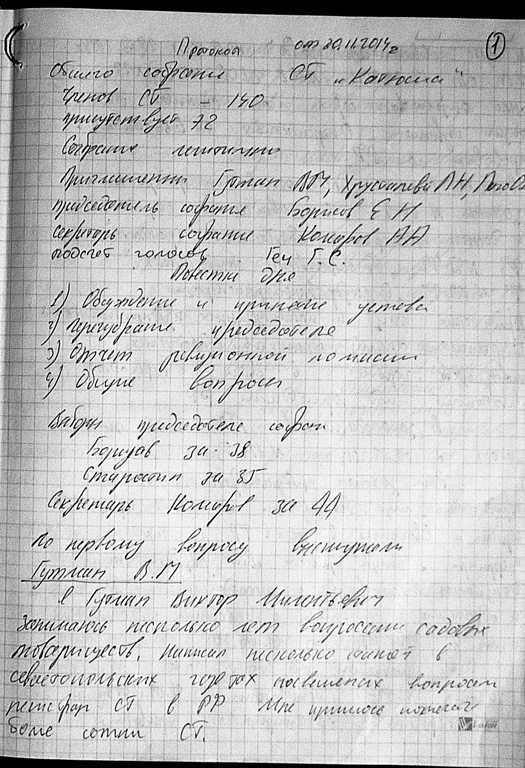 1
Протокол от 30.11.2014г
Общего собрания СТ "Катюша"
Членов СТ - 140
присутствует 72
Собрание легитимно
Приглашенны Гутман ВМ, Хрусталева ЛН,
председатель собрание Борисов Е Н
секретарь собрание Комаров АА
подсчет голосов Геч Г.С.
Повестка дня
1) Обсуждение и принятие устава
2) Переизбрание председателя
3) Отчет ревизионной комиссии
4) Общие вопросы
Выборы председателя собран
Борисов за - 38
Старостин за 35
Секретарь Комаров за 44
По первому вопросу выступали
Гутман В.М
Гутман Виктор
занимаюсь несколько лет вопросами садовых
товариществ. Написал несколько статей в
севастопольских газетах посвященых вопросам
регистрац СТ в РФ Мне пришлось помогать
более сотни СТ.